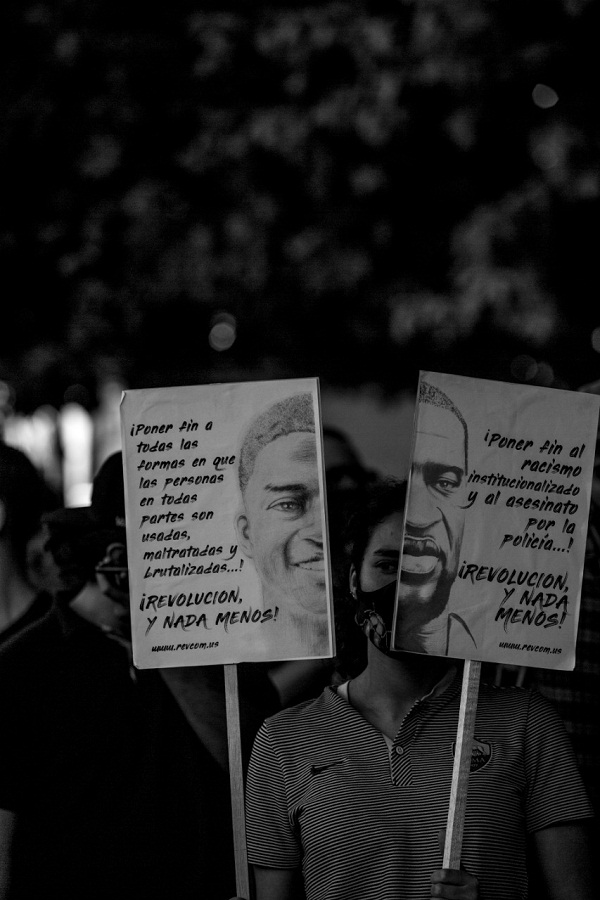 ¡Poner fin a
todas las
formas en que
las personas
en todas
partes son
usadas,
maltratadas y
brutalizadas...!
¡REVOLUCION,
Y NADA MENOS!
www.revcom.us
¡Poner fin al
racismo
institucionalizado
y al asesinato
por la
policía...!
¡REVOLUCION,
Y NADA
MENOS!
www.revcom.us